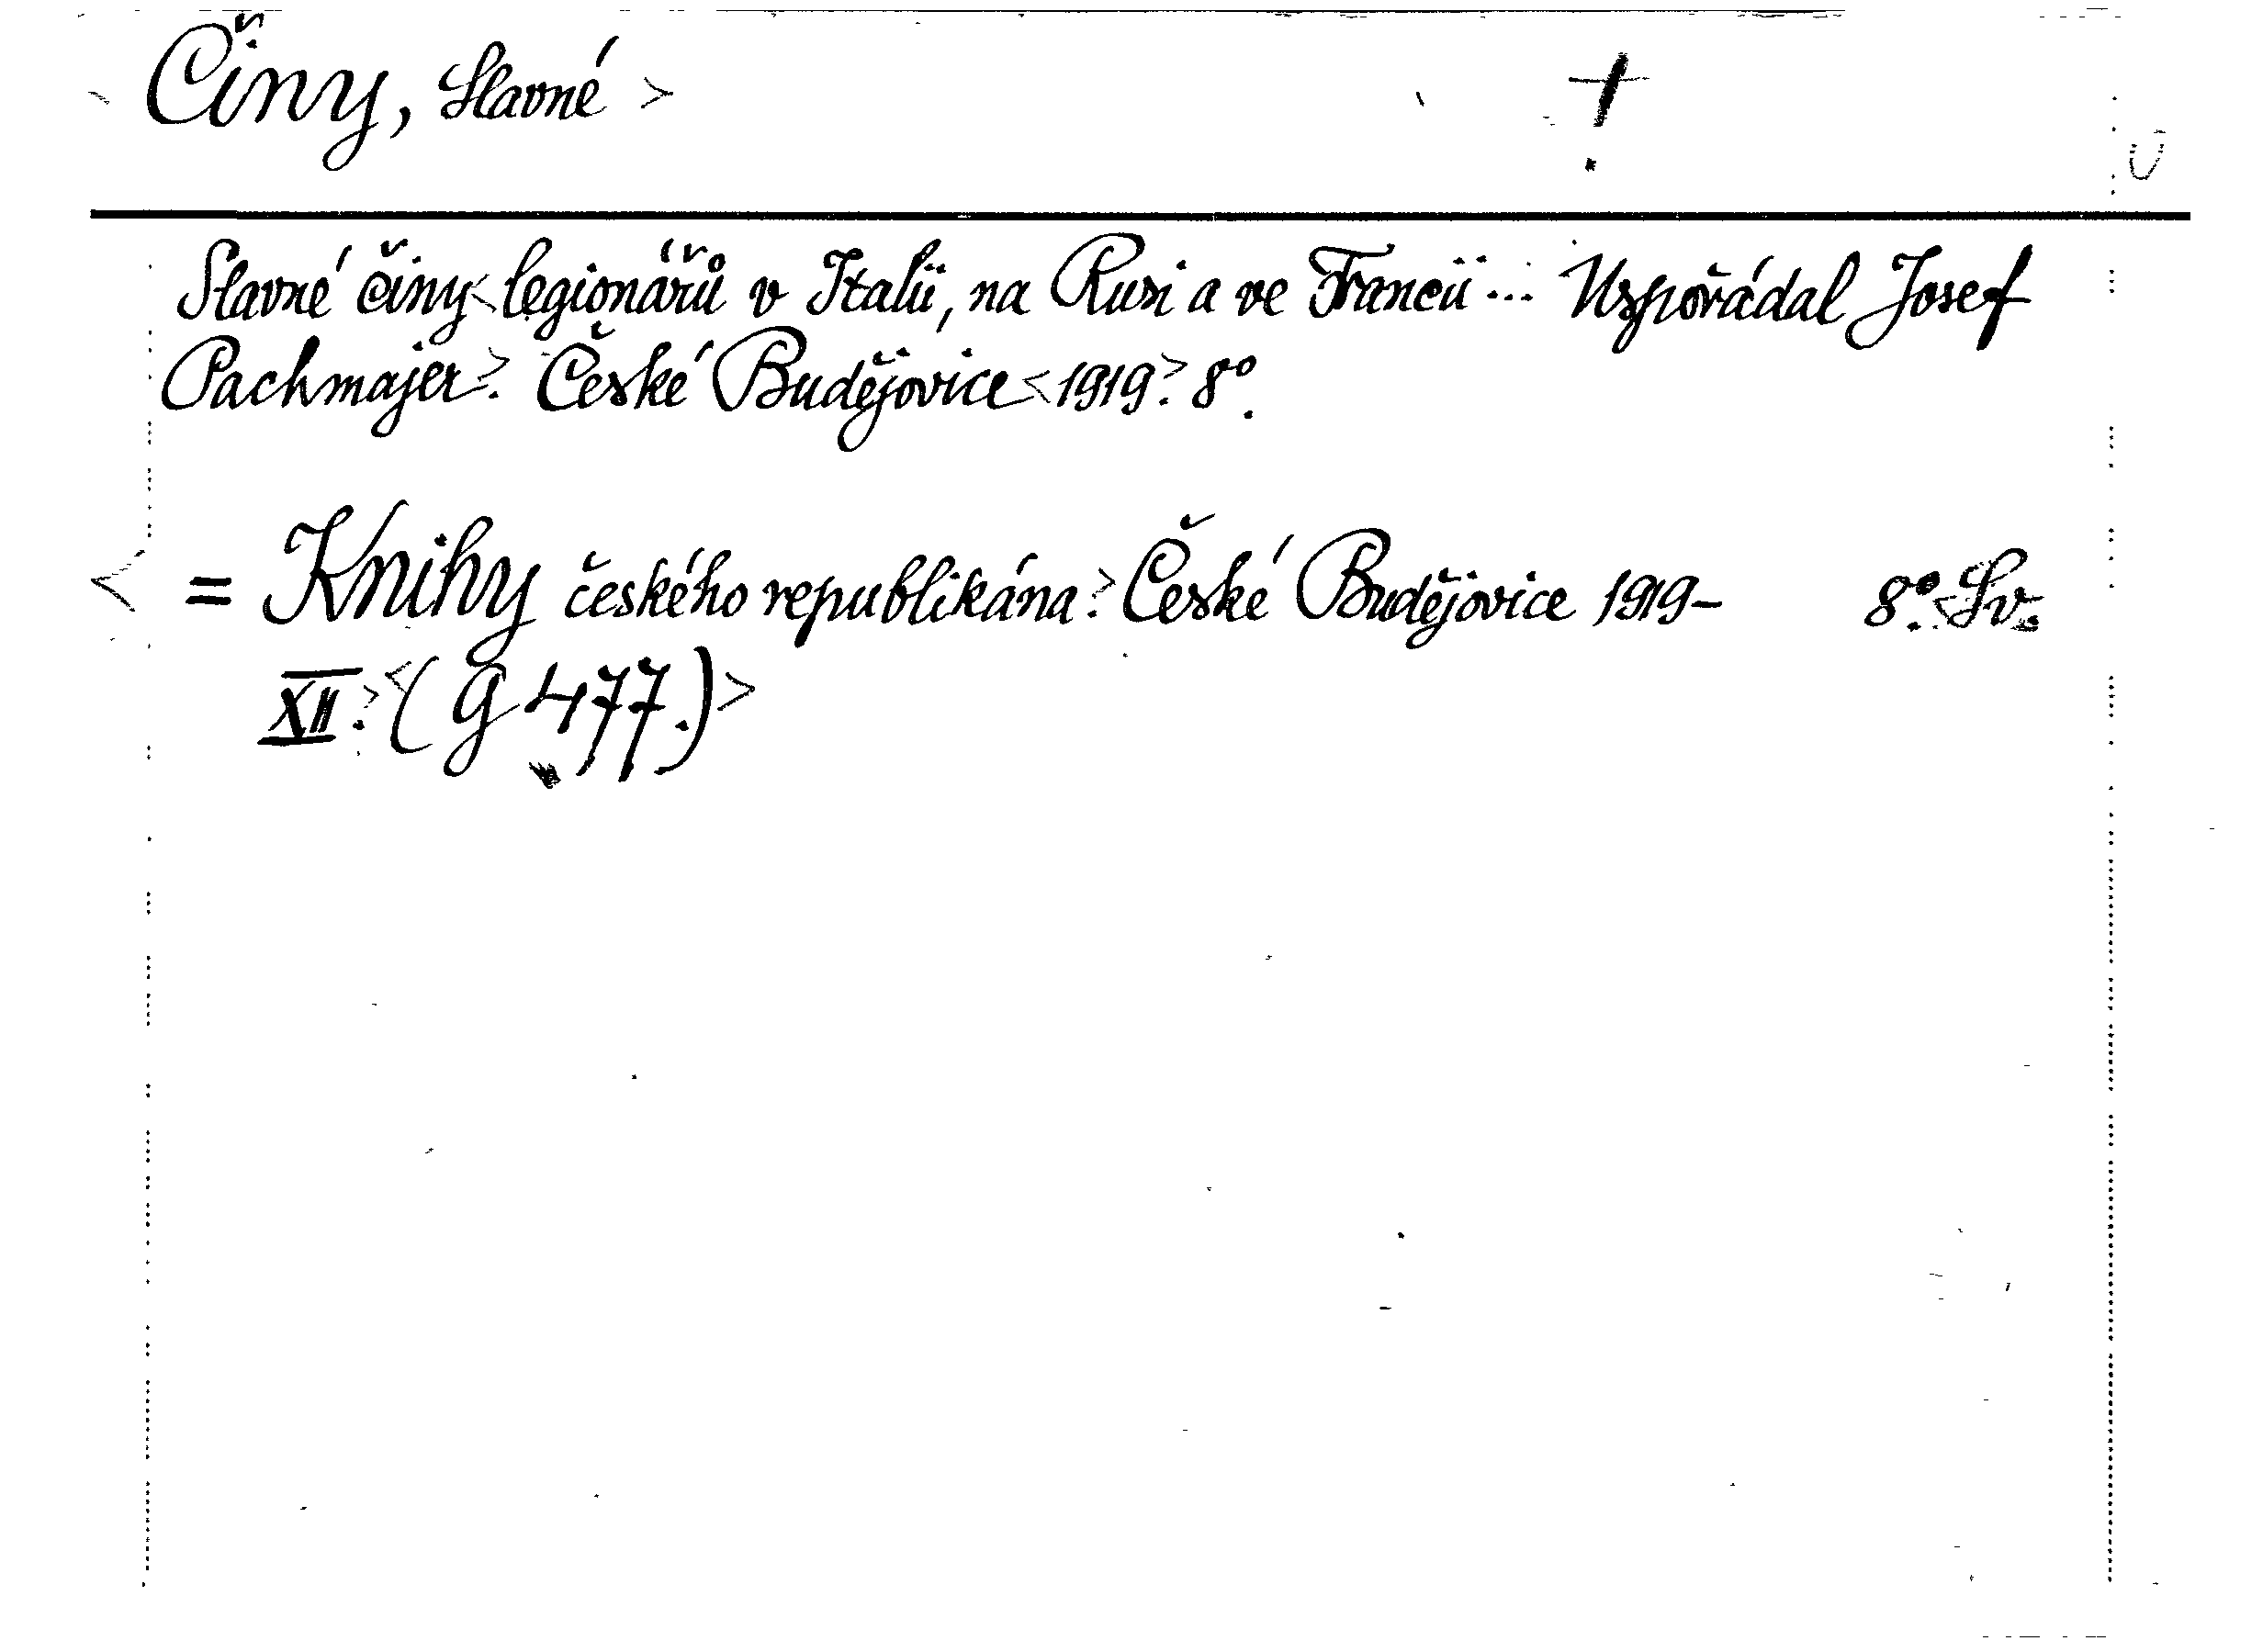 Činy, Slavné > †
Slavné činy < legionářů v Italii, na Rusi a ve Francii... Uspořádal Josef
Pachmajer>. České Budějovice <1919>. 8°.
< = Knihy českého republikána>. České Budějovice 1919- 8°. <Sv.
XII.> <(G 477.)>